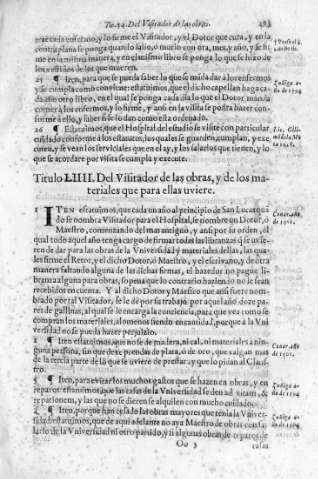 Tit. 54. Del Visitador de las obras. 283
trae cada vn consigo, y lo firme el Visitador, y el Dotor que cura, y en la
contra plana se ponga quando salio, o murio con ora, mes, y año, y se fir
me en la misma manera, y en el mismo libro se ponga lo que se hizo de
los vestidos de los que mueren.
25 ¶ Iten, para que se pueda saber lo que se mãda dar a los enfermos
y se cumpla como conviene: estatuimos, que el dicho capellan haga ca
da año otro libro, en el qual se ponga cada dia lo que el Dotor manda
comer a los enfermos, y lo firme, y ansi en la visita se podra hazer con-
forme a ello, y saber si se lo dan como esta ordenado.
26 ¶ Estatuimos, que el Hospital del estudio se visite con particular
cuidado conforme a los estatutos, los quales se guarden, cumplan, y exe
cuten, y se vean los serviciales que en el ay, y los salarios que tienen, y lo
que se acordare por visita se cumpla y execute.
Titulo LIIII. Del Visitador de las obras, y de los ma-
teriales que para ellas uviere.
1 ITEN estatuimos, que cada vn año al principio de San Lucas quã
do se nombra Visitador para el Hospital, se nombre vn Dotor, o
Maestro, començando del mas antiguo, y ansi por su orden, el
qual todo aquel año tenga cargo de firmar todas las libranças q̃ se uvie
ren de dar para las obras de la Vniversidad y materiales dellas, las qua
les firme el Retor, y el dicho Dotor, o Maestro, y el escrivano, y de otra
manera faltando alguna de las dichas firmas, el hazedor no pague li-
brança alguna para obras, so pena que lo contrario haziendo no le sean
recebidos en cuenta. Y al dicho Dotor y Maestro que ansi fuere nom-
brado por tal Visitador, se le dè por su trabajo por aquel año doze pa-
res de gallinas, al qual se le encarga la conciencia, para que vea como se
compran los materiales, alomenos siendo en cantidad, porque a la Vni
versidad no se pueda hazer perjuizio.
2 ¶ Iten estatuimos, que no se de madera, ni cal, ni materiales a nin-
guna persona, sin que dexe prendas de plata, ò de oro, que valgan mas
de la tercia parte de lo que se uviere de prestar: y que lo pidan al Claus-
tro.
3 ¶ Iten, para evitar los muchos gastos que se hazen en obras, y en
reparos: estatuimos, que las casas de la Vniversidad se den ad vitam, &
reparationem, y las que no se dieren se alquilen con mucho cuidado.
4 ¶ Iten, porque han cessado las obras mayores que tenia la Vniver-
sidad: estatuimos, que de aqui adelante no aya Maestro de obras con sa-
lario de la Vniversidad ni otro partido, y si algunas obras de reparos de
Oo 3 casas